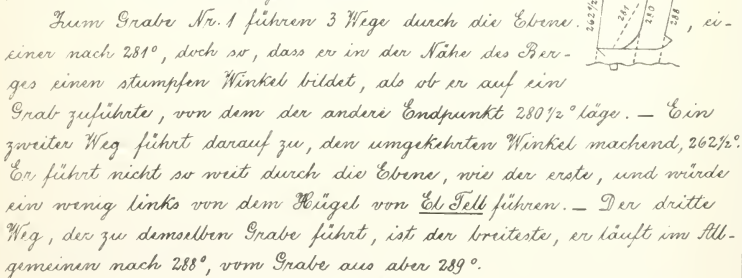 Zum Grabe Nr. 1 führen 3 Wege durch die Ebene. , ei-
einer nach 281°, doch so, dass er in der Nähe des Ber-
ges einen stumpfen Winkel bildet, als ob er auf ein
Grab zuführte, von dem der andere Endpunkt 280 1/2° läge. — Ein
zweiter Weg führt darauf zu, den umgekehrten Winkel machend, 262 1/2°.
Er führt nicht so weit durch die Ebene, wie der erste, und würde
ein wenig links von dem Hügel von El Tell führen. — Der dritte
Weg, der zu demselben Grabe führt, ist der breiteste, er läuft im All-
gemeinen nach 288°, vom Grabe aus aber 289°.
262 1/2
281
280
288